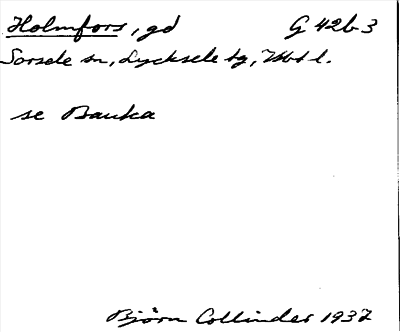 Holmfors, gd G 42b3
Sorsele sn, Lycksele tg, Vbt l.
se Bauka
Björn Collinder 1937